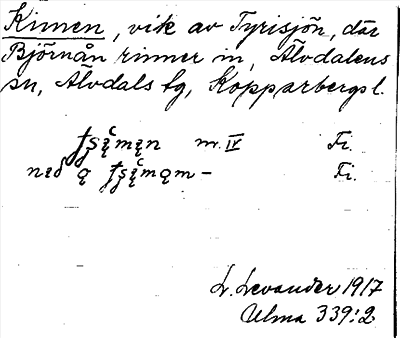 Kinnen, vik av Tyrisjön, där
Björnån rinner in, Älvdalens
sn, Älvdals tg, Kopparbergs l.
m. IV Fi.
Fi.
L. Levander 1917
Ulma 339:2